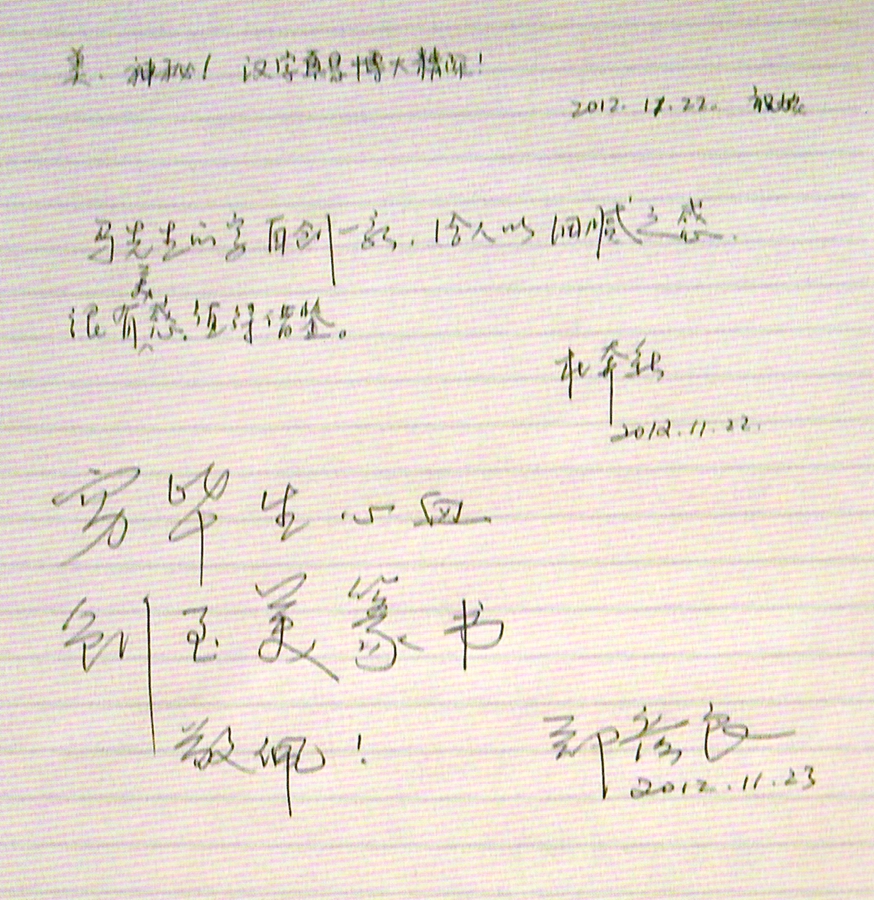 美、神秘！汉字真是博大精深！
2012.11.22.
马先生的字自创一系，给人以细腻之感，
很有美感，值得借鉴。
杜奔
2012.11.22.
穷毕生心血
创至美篆书
敬佩！ 郑
2012.11.23